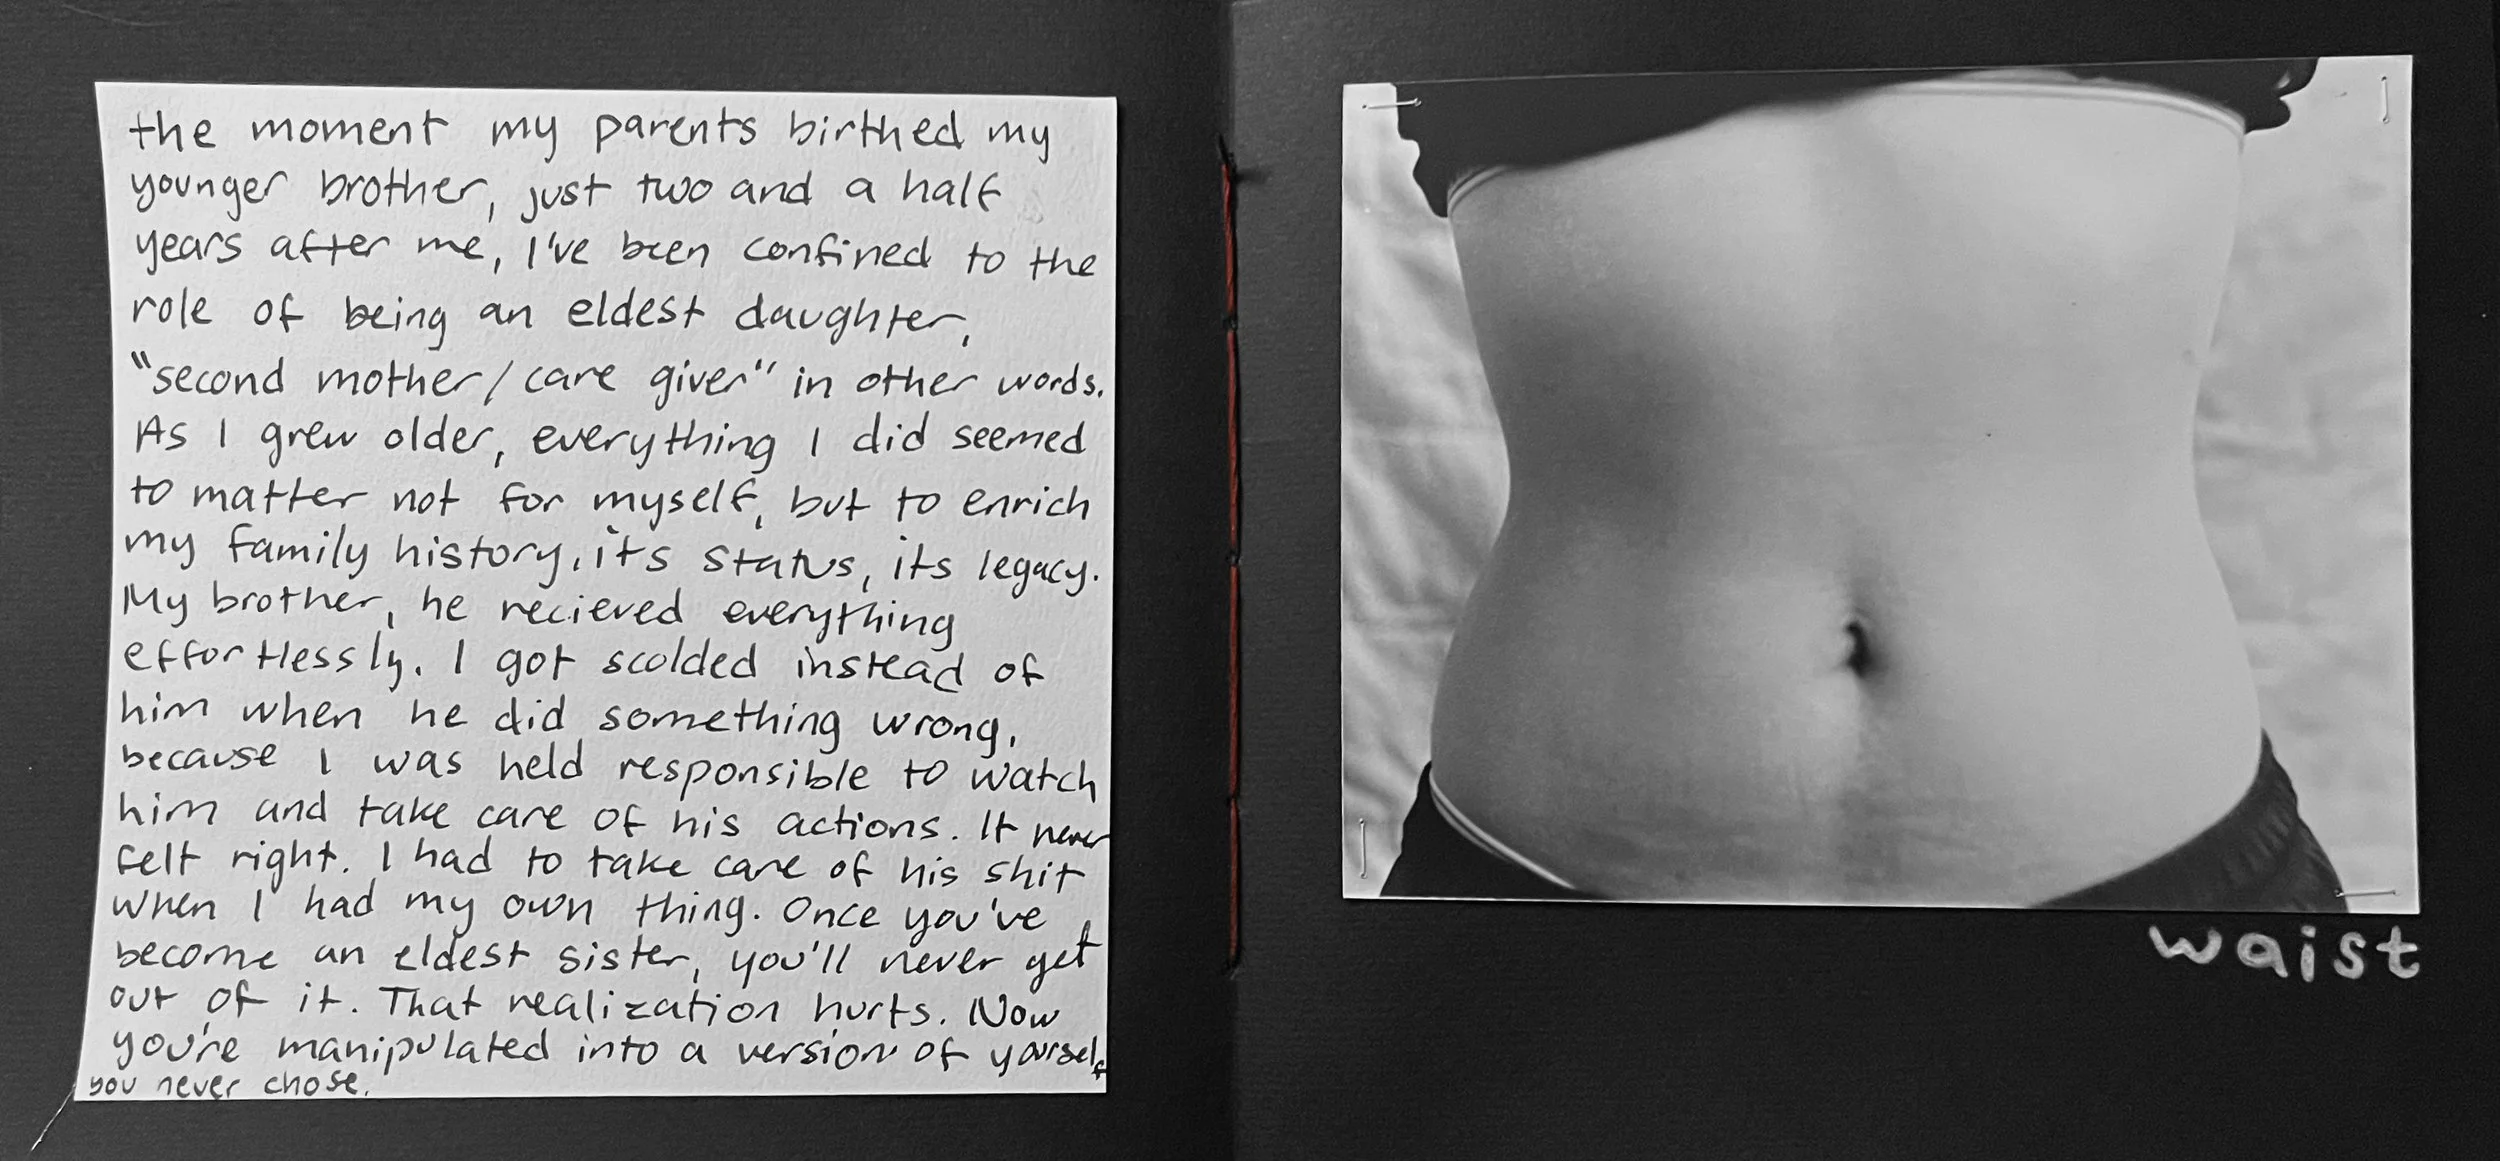 the moment my parents birthed my
younger brother, just two and a half
years after me, I've been confined to the
role of being an eldest daughter,
"second mother/care giver" in other words.
As I grew older, everything I did seemed
to matter not for myself, but to enrich
my family history, it's status, its legacy.
My brother, he recieved everything
effortlessly. I got scolded instead of
him when he did something wrong,
because I was held responsible to watch
him and take care of his actions. It never
felt right. I had to take care of his shit
when I had my own thing. Once you've
become an eldest sister, you'll never get
out of it. That realization hurts. Now
you're manipulated into a version of yourself
you never chose.
waist